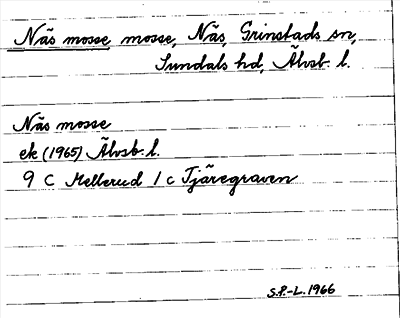 Näs mosse, mosse, Näs, Grinstads sn,
Sundals hd, Älvsb. l.
Näs mosse
ek (1965) Älvsb. l.
9 C Mellerud 1 c Tjäregraven
S.P.-L. 1966